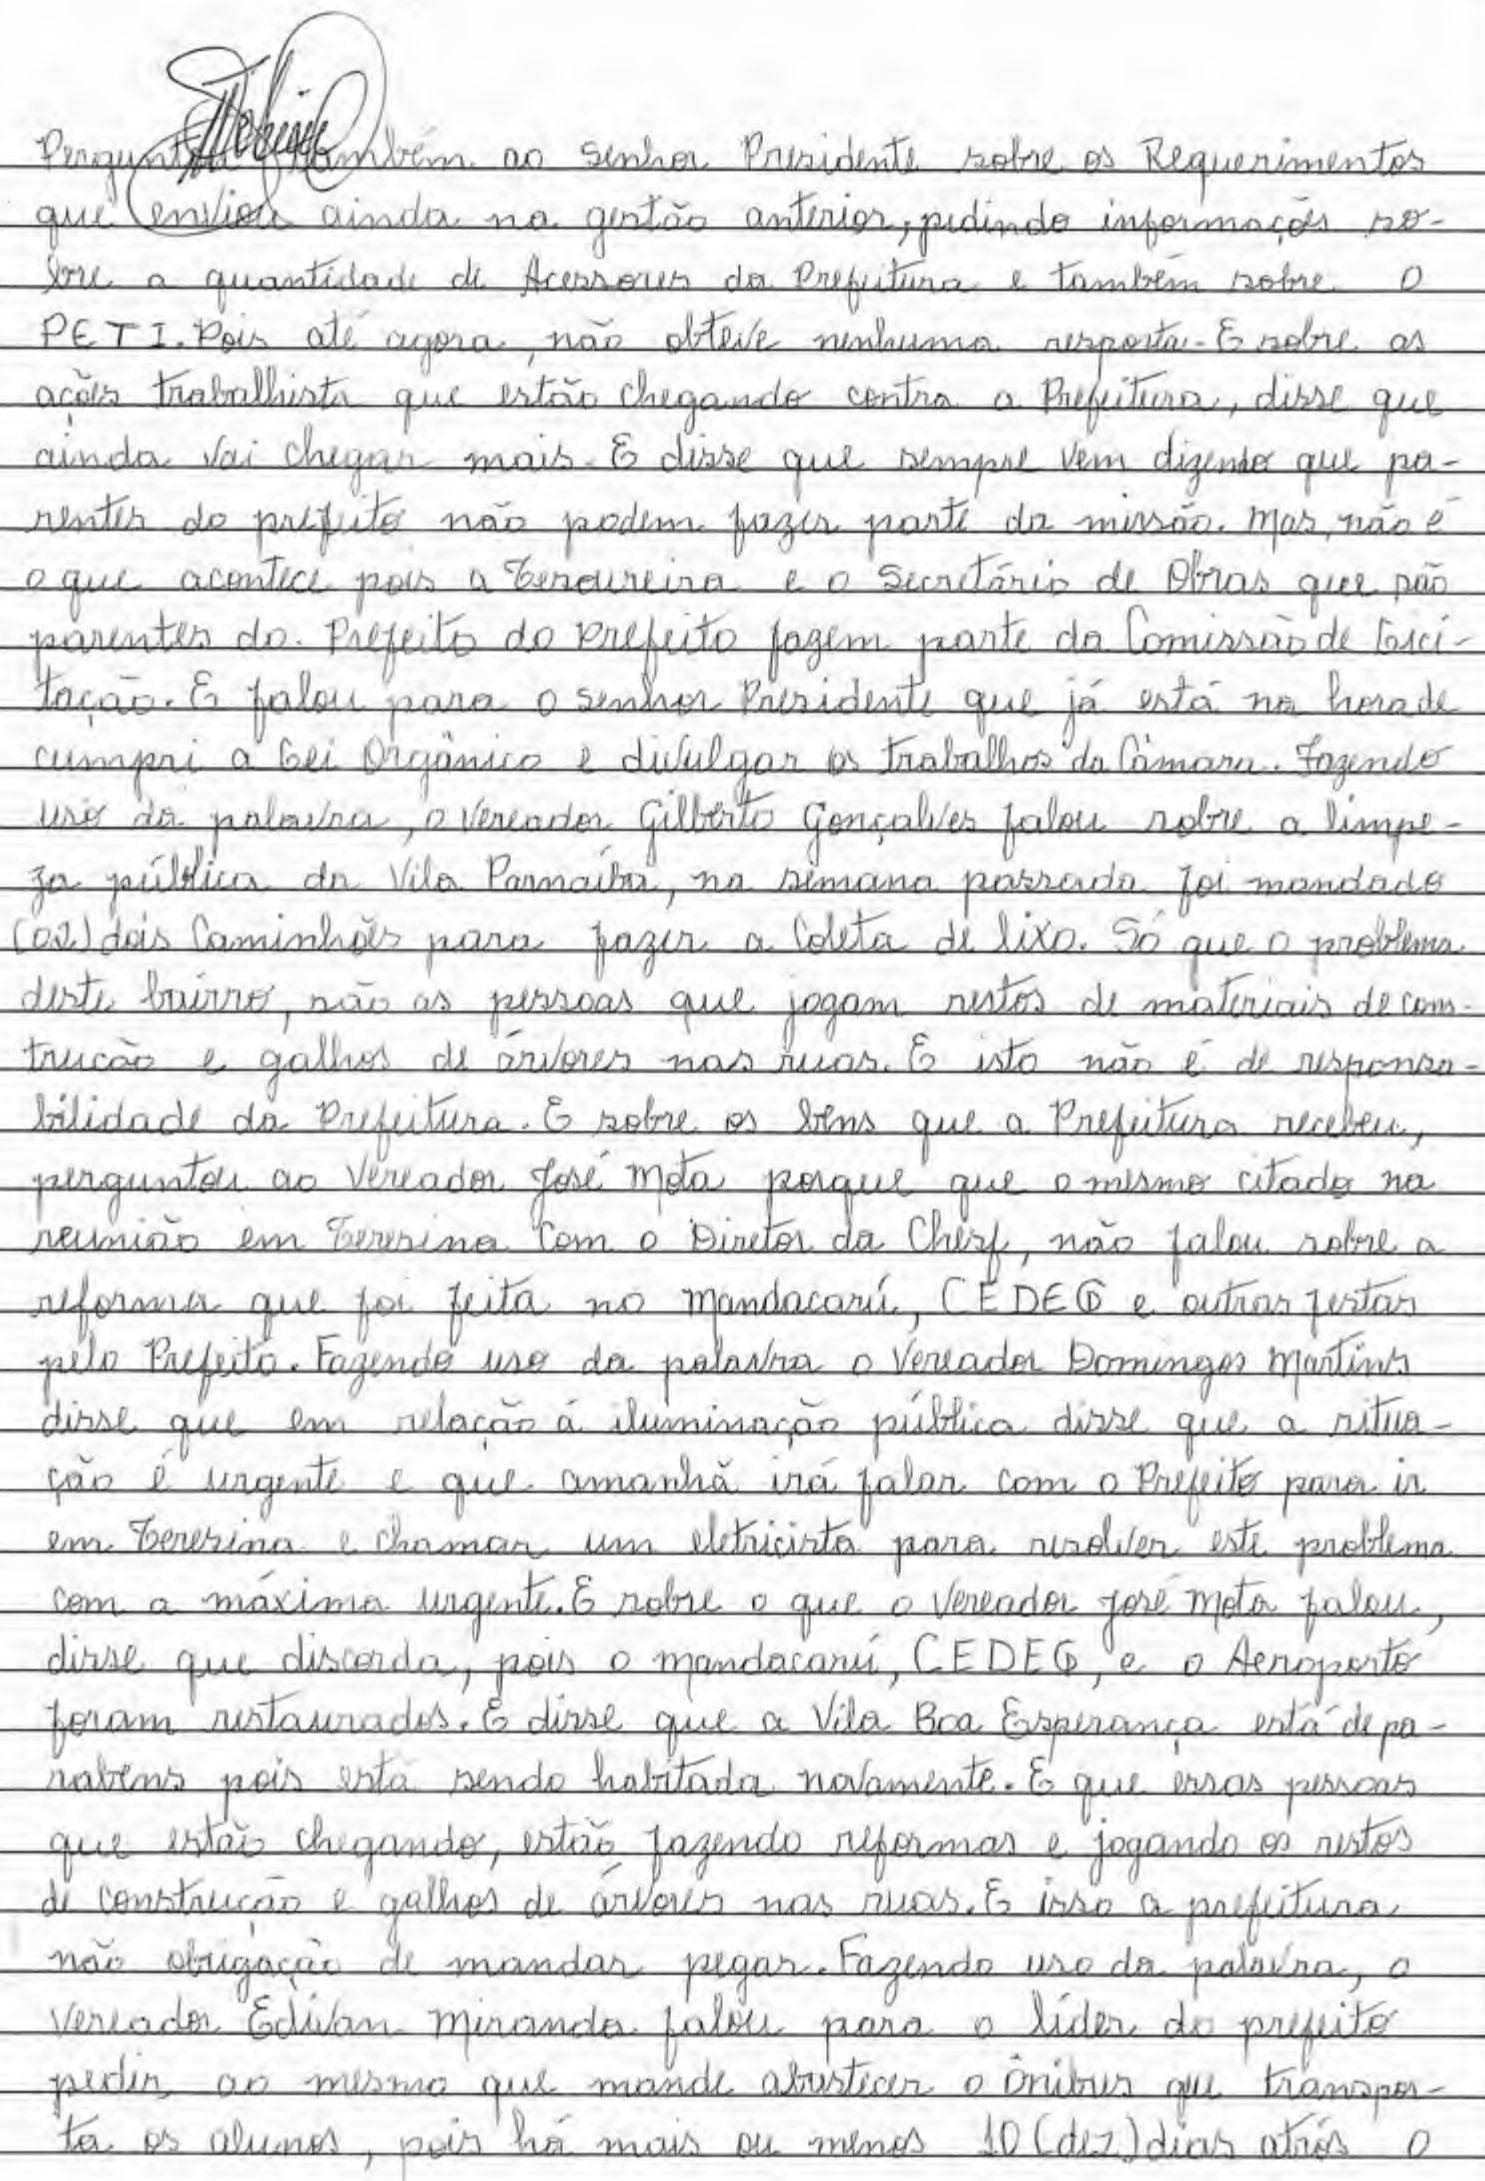 Perguntou também ao Senhor Presidente sobre os Requerimentos
que enviou ainda na gestão anterior, pedindo informações so-
bre a quantidade de Acessores da Prefeitura e também sobre O
PETI. Pois até agora, não obteve nenhuma resposta. E sobre as
ações trabalhista que estão chegando contra a Prefeitura, disse que
ainda vai chegar mais. E disse que sempre vem dizendo que pa-
rentes do prefeito não podem fazer parte da missão. Mas, não é
o que acontece pois a Tesoureira e o Secretário de Obras que são
parentes do. Prefeito do Prefeito fazem parte da Comissão de Lici-
tação. E falou para o Senhor Presidente que já está na hora de
cumpri a Lei Orgânica e divulgar os trabalhos da Câmara. Fazendo
uso da palavra, o Vereador Gilberto Gonçalves falou sobre a limpe-
za pública da Vila Parnaíba, na semana passada foi mandado
(02) dois Caminhões para fazer a Coleta de lixo. Só que o problema
deste bairro, são as pessoas que jogam restos de materiais de cons-
trucão e galhos de árvores nas ruas. E isto não é de responsa-
bilidade da Prefeitura. E sobre os bens que a Prefeitura recebeu,
perguntou ao Vereador José Mota porque que o mesmo citado na
reunião em Teresina Com o Diretor da Chesf, não falou sobre a
reforma que foi feita no Mandacarú, CEDEG e outras festas
pelo Prefeito. Fazendo uso da palavra o Vereador Domingos Martins
disse que em relação á iluminação pública disse que a situa-
ção é urgente e que amanhã irá falar com o Prefeito para ir
em Teresina e chamar um eletricista para resolver este problema
com a máxima urgente. E sobre o que o Vereador José Mota falou,
disse que discorda, pois o mandacarú, CEDEG, e o Aeroporto
foram restaurados. E disse que a Vila Boa Esperança está de pa-
rabens pois está sendo habitada novamente. E que essas pessoas
que estão chegando, estão fazendo reformas e jogando os restos
de construção e galhos de árvores nas ruas. E isso a prefeitura
não obrigação de mandar pegar. Fazendo uso da palavra, o
Vereador Edivan Miranda falou para o líder do prefeito
pedir ao mesmo que mande abastecer o Ônibus que transpor-
ta os alunos, pois há mais ou menos 10 (dez) dias atrás o